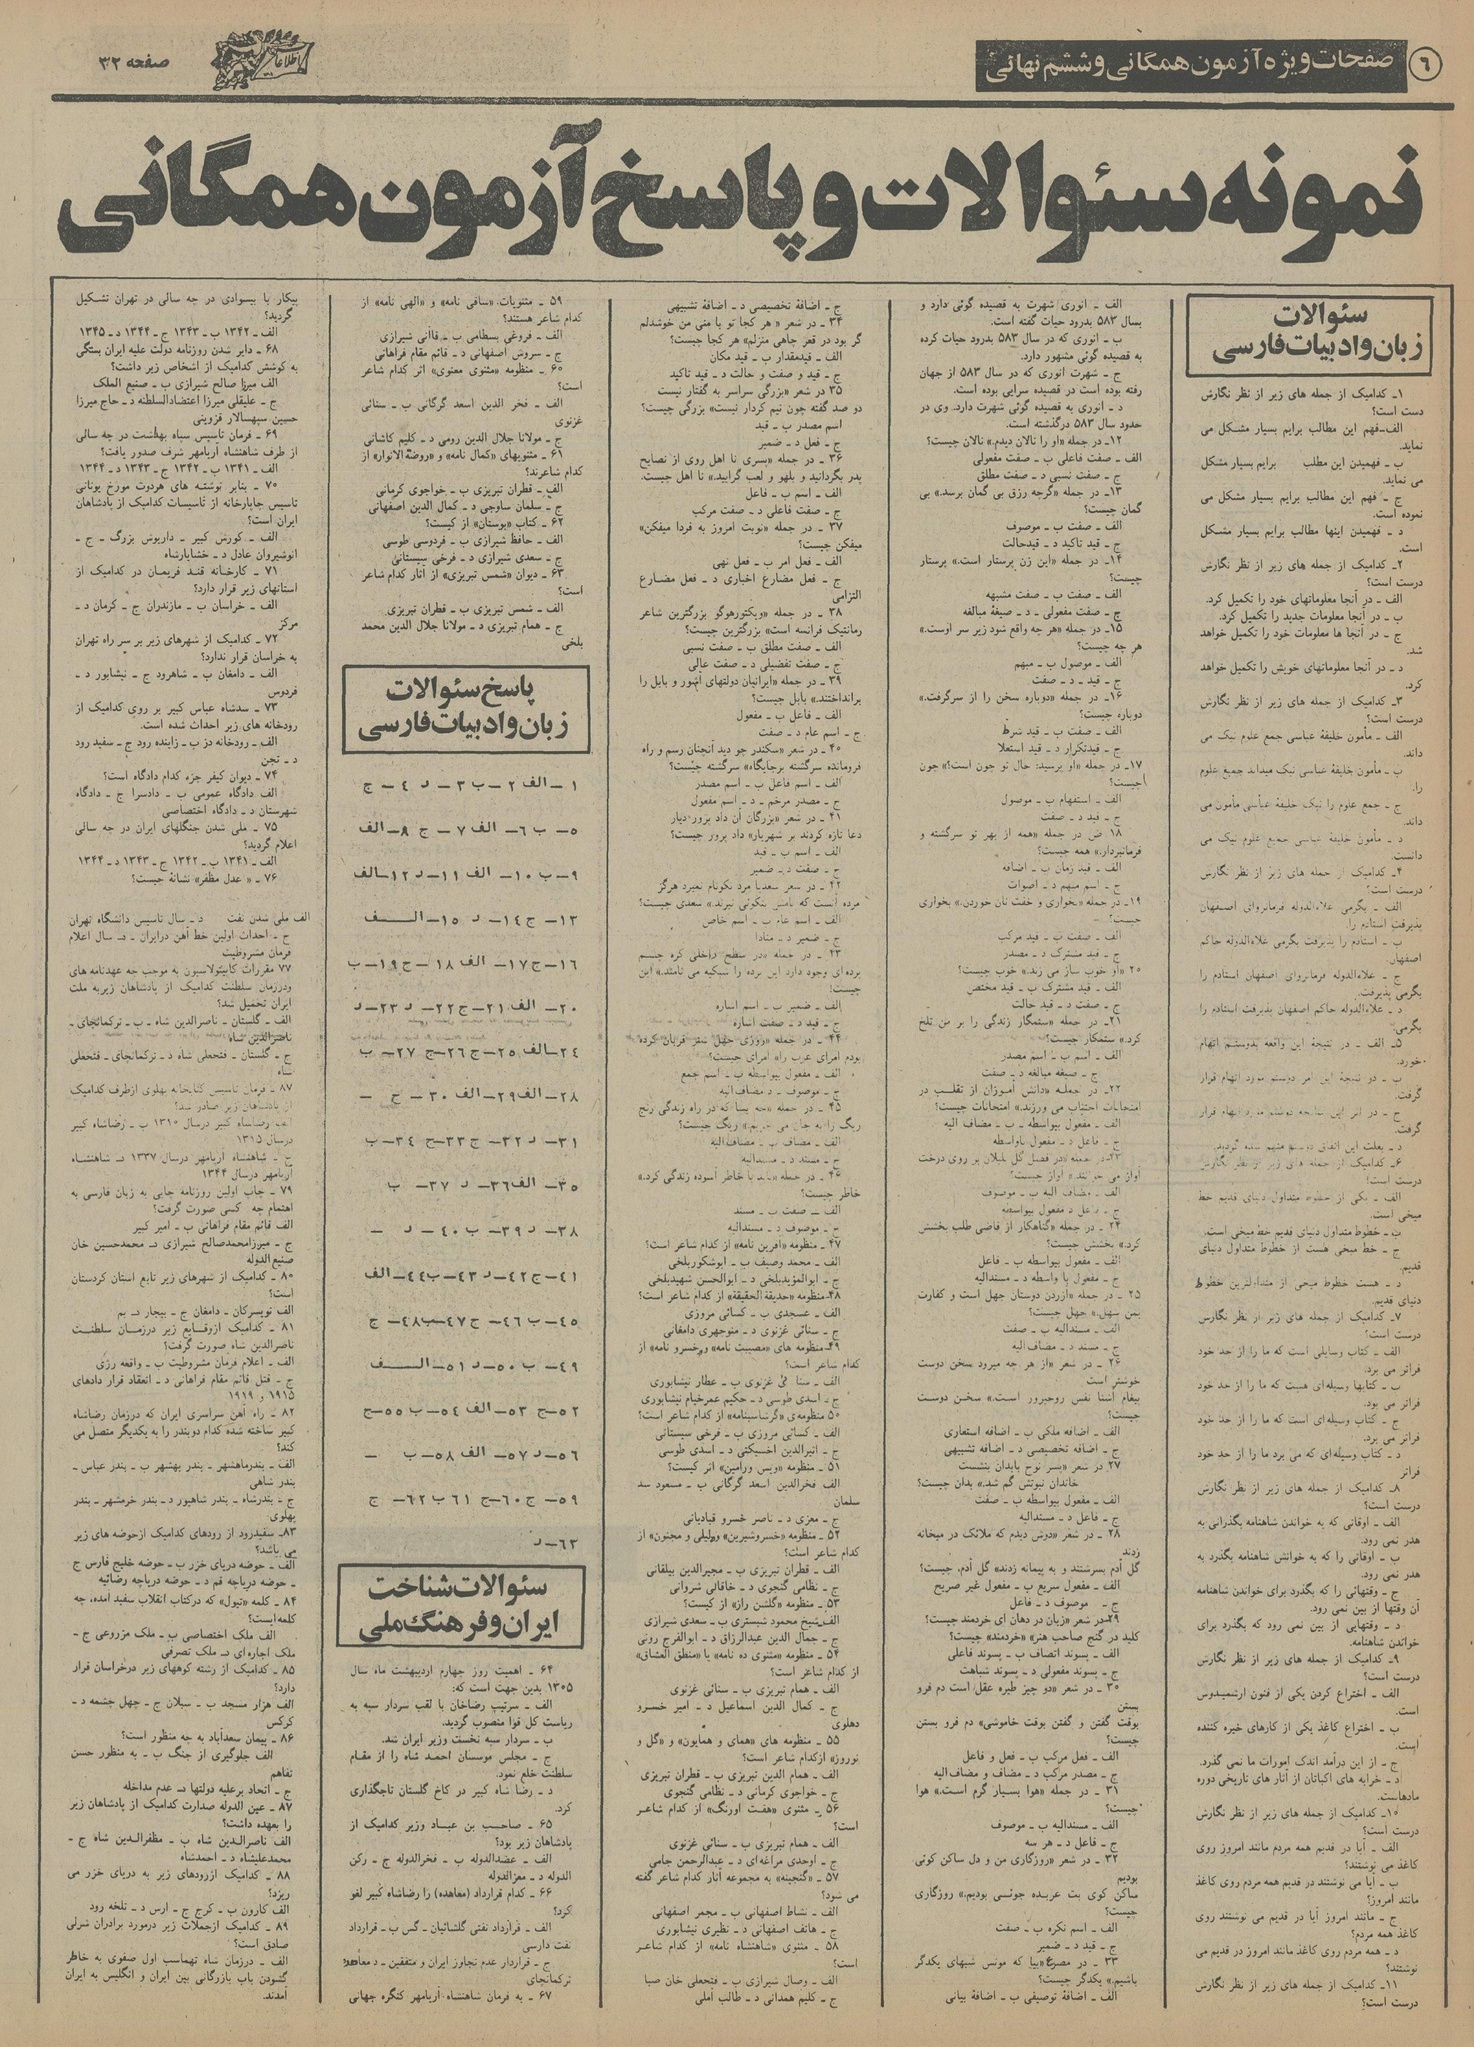 ۶
صفحات ویژه آزمون همگانی و ششم نهائی
اطلاعات
صفحه ۳۲
نمونه سئوالات و پاسخ آزمون همگانی
سئوالات
زبان و ادبیات فارسی
۱ـ کدامیک از جمله های زیر از نظر نگارش
دست است؟
الف ـ فهم این مطالب برایم بسیار مشکل می
نماید.
ب ـ فهمیدن این مطلب برایم بسیار مشکل
می نماید.
ج ـ فهم این مطالب برایم بسیار مشکل می
نموده است.
د ـ فهمیدن اینها مطالب برایم بسیار مشکل
است.
۲ـ کدامیک از جمله های زیر از نظر نگارش
درست است؟
الف ـ در آنجا معلوماتهای خود را تکمیل کرد.
ب ـ در آنجا معلومات جدید را تکمیل کرد.
ج ـ در آنجا ها معلومات خود را تکمیل خواهد
شد.
د ـ در آنجا معلوماتهای خویش را تکمیل خواهد
کرد.
۳ـ کدامیک از جمله های زیر از نظر نگارش
درست است؟
الف ـ مأمون خلیفۀ عباسی جمع علوم نیک می
داند.
ب ـ مأمون خلیفۀ عباسی نیک میداند جمیع علوم
را.
ج ـ جمع علوم را نیک خلیفۀ عباسی مأمون می
داند.
د ـ مأمون خلیفۀ عباسی جمیع علوم نیک می
دانست.
۴ـ کدامیک از جمله های زیر از نظر نگارش
درست است؟
الف ـ بگرمی علاءالدوله فرمانروای اصفهان
پذیرفت استادم را.
ب ـ استادم را پذیرفت بگرمی علاءالدوله حاکم
اصفهان.
ج ـ علاءالدوله فرمانروای اصفهان استادم را
بگرمی پذیرفت.
د ـ علاءالدوله حاکم اصفهان پذیرفت استادم را
بگرمی.
۵ـ الف ـ در نتیجۀ این واقعه بدوستم اتهام
خورد.
ب ـ در نتیجۀ این امر دوستم مورد اتهام قرار
گرفت.
گرفت.
۶ـ کدامیک از جمله های زیر از نظر نگارش
درست است؟
الف ـ یکی از خطوط متداول دنیای قدیم خط
میخی است.
ب ـ خطوط متداول دنیای قدیم خط میخی است.
ج ـ خط میخی هست از خطوط متداول دنیای
قدیم.
د ـ هست خطوط میخی از متداولترین خطوط
دنیای قدیم.
۷ـ کدامیک از جمله های زیر از نظر نگارش
درست است؟
الف ـ کتاب وسایلی است که ما را از حد خود
فراتر می برد.
ب ـ کتابها وسیله‌ای هست که ما را از حد خود
فراتر می بود.
ج ـ کتاب وسیله‌ای است که ما را از حد خود
فراتر می برد.
د ـ کتاب وسیله‌ای که می برد ما را از حد خود
فراتر
۸ـ کدامیک از جمله های زیر از نظر نگارش
درست است؟
الف ـ اوقاتی که به خواندن شاهنامه بگذرانی به
هدر نمی رود.
ب ـ اوقاتی را که به خوانش شاهنامه بگذرد به
هدر نمی رود.
ج ـ وقتهائی را که بگذرد برای خواندن شاهنامه
آن وقتها از بین نمی رود.
د ـ وقتهایی از بین نمی رود که بگذرد برای
خواندن شاهنامه.
۹ـ کدامیک از جمله های زیر از نظر نگارش
درست است؟
الف ـ اختراع کردن یکی از فنون ارشمیدوس
است.
ب ـ اختراع کاغذ یکی از کارهای خیره کننده
است.
ج ـ از این درآمد اندک امورات ما نمی گذرد.
د ـ خرابه های اکباتان از آثار های تاریخی دوره
مادهاست.
۱۰ـ کدامیک از جمله های زیر از نظر نگارش
درست است؟
الف ـ آیا در قدیم همه مردم مانند امروز روی
کاغذ می نوشتند؟
ب ـ آیا می نوشتند در قدیم همه مردم روی کاغذ
مانند امروز؟
ج ـ مانند امروز آیا در قدیم می نوشتند روی
کاغذ همه مردم؟
د ـ همه مردم روی کاغذ مانند امروز در قدیم می
نوشتند؟
۱۱ـ کدامیک از جمله های زیر از نظر نگارش
درست است؟
الف ـ انوری شهرت به قصیده گوئی دارد و
بسال ۵۸۳ بدرود حیات گفته است.
ب ـ انوری که در سال ۵۸۳ بدرود حیات کرده
به قصیده گوئی مشهور دارد.
ج ـ شهرت انوری که در سال ۵۸۳ از جهان
رفته بوده است در قصیده سرایی بوده است.
د ـ انوری به قصیده گوئی شهرت دارد. وی در
حدود سال ۵۸۳ درگذشته است.
۱۲ـ در جمله «او را نالان دیدم.» نالان چیست؟
الف ـ صفت فاعلی ب ـ صفت مفعولی
ج ـ صفت نسبی د ـ صفت مطلق
۱۳ـ در جمله «گرچه رزق بی گمان برسد.» بی
گمان چیست؟
الف ـ صفت ب ـ موصوف
ج ـ قید تاکید د ـ قید حالت
۱۴ـ در جمله «این زن پرستار است.» پرستار
چیست؟
الف ـ صفت ب ـ صفت مشبهه
ج ـ صفت مفعولی ـ د ـ صیغۀ مبالغه
۱۵ـ در جمله «هر چه واقع شود زیر سر اوست.»
هر چه چیست؟
الف ـ موصول ب ـ مبهم
ج ـ قید ـ د ـ صفت
۱۶ـ در جمله «دوباره سخن را از سرگرفت.»
دوباره چیست؟
الف ـ صفت ب ـ قید شرط
ج ـ قید تکرار د ـ قید استعلا
۱۷ـ در جمله «او پرسید: حال تو چون است؟» چون
چیست؟
الف ـ استفهام ب ـ موصول
ج ـ قید د ـ صفت
۱۸ ض در جمله «همه از بهر تو سرگشته و
فرمانبردار.» همه چیست؟
الف ـ قید زمان ب ـ اضافه
ج ـ اسم مبهم د ـ اصوات
۱۹ـ در جمله «بخواری و خفت نان خوردن.» بخواری
چیست؟
الف ـ صفت ب ـ قید مرکب
ج ـ قید مشترک د ـ مصدر
۲۰ «او خوب ساز می زند.» خوب چیست؟
الف ـ قید مشترک ب ـ قید مختص
ج ـ صفت د ـ قید حالت
۲۱ـ در جمله «ستمگار زندگی را بر من تلخ
کرد.» ستمگار چیست؟
الف ـ اسم ب ـ اسم مصدر
ج ـ صیغه مبالغه د ـ صفت
۲۲ـ در جمله «دانش آموزان از تقلب در
امتحانات اجتناب می ورزند.» امتحانات چیست؟
الف ـ مفعول بیواسطه ـ ب ـ مضاف الیه
ج ـ فاعل د ـ مفعول باواسطه
الف ـ مضاف الیه ب ـ موصوف
ج ـ فاعل د ـ مفعول بیواسطه
۲۴ ـ در جمله «گناهکار از قاضی طلب بخشش
کرد.» بخشش چیست؟
الف ـ مفعول بیواسطه ب ـ فاعل
ج ـ مفعول با واسطه د ـ مسندالیه
۲۵ ـ در جمله «آزردن دوستان جهل است و کفارت
یمین سهل.» جهل چیست؟
الف ـ مسندالیه ب ـ صفت
ج ـ مسند د ـ مضاف الیه
۲۶ ـ در شعر «از هر چه میرود سخن دوست
خوشتر است
پیغام آشنا نفس روحپرور است.» سخن دوست
چیست؟
الف ـ اضافه ملکی ب ـ اضافه استعاری
ج ـ اضافه تخصیصی د ـ اضافه تشبیهی
۲۷ در شعر «پسر نوح بابدان بنشست
خاندان نبوتش گم شد.» بدان چیست؟
الف ـ مفعول بیواسطه ب ـ صفت
ج ـ فاعل د ـ مسندالیه
۲۸ ـ در شعر «دوش دیدم که ملائک در میخانه
زدند
گل آدم بسرشتند و به پیمانه زدند» گل آدم، چیست؟
الف ـ مفعول سریع ب ـ مفعول غیر صریح
ج ـ موصوف د ـ فاعل
۲۹ـ در شعر «زبان در دهان ای خردمند چیست؟
کلید در گنج صاحب هنر» «خردمند» چیست؟
الف ـ پسوند اتصاف ب ـ پسوند فاعلی
ج ـ پسوند مفعولی د ـ پسوند شباهت
۳۰ ـ در شعر «دو چیز طیره عقل است دم فرو
بستن
بوقت گفتن و گفتن بوقت خاموشی» دم فرو بستن
چیست؟
الف ـ فعل مرکب ب ـ فعل و فاعل
ج ـ مصدر مرکب د ـ مضاف و مضاف الیه
۳۱ ـ در جمله «هوا بسیار گرم است.» هوا
چیست؟
الف ـ مسندالیه ب ـ موصوف
ج ـ فاعل د ـ هر سه
۳۲ ـ در شعر «روزگاری من و دل ساکن کوئی
بودیم
ساکن کوی بت عربده جوئی بودیم.» روزگاری
چیست؟
الف ـ اسم نکره ب ـ صفت
ج ـ قید د ـ ضمیر
۳۳ ـ در مصرع «بیا که مونس شبهای یکدگر
باشیم.» یکدگر چیست؟
الف ـ اضافۀ توصیفی ب ـ اضافۀ بیانی
ج ـ اضافۀ تخصیصی د ـ اضافۀ تشبیهی
۳۴ ـ در شعر « هر کجا تو با منی من خوشدلم
گر بود در قعر چاهی منزلم» هر کجا چیست؟
الف ـ قیدمقدار ب ـ قید مکان
ج ـ قید و صفت و حالت د ـ قید تاکید
۳۵ در شعر «بزرگی سراسر به گفتار نیست
دو صد گفته چون نیم کردار نیست» بزرگی چیست؟
اسم مصدر ب ـ قید
ج ـ فعل د ـ ضمیر
۳۶ ـ در جمله «پسری نا اهل روی از نصایح
پدر بگردانید و بلهو و لعب گرایید.» نا اهل چیست.
الف ـ اسم ب ـ فاعل
ج ـ صفت فاعلی د ـ صفت مرکب
۳۷ ـ در جمله «نوبت امروز به فردا میفکن»
میفکن چیست؟
الف ـ فعل امر ب ـ فعل نهی
ج ـ فعل مضارع اخباری د ـ فعل مضارع
التزامی
۳۸ ـ در جمله «ویکتورهوگو بزرگترین شاعر
رمانتیک فرانسه است» بزرگترین چیست؟
الف ـ صفت مطلق ب ـ صفت نسبی
ج ـ صفت تفضیلی د ـ صفت عالی
۳۹ ـ در جمله «ایرانیان دولتهای آشور و بابل را
برانداختند.» بابل چیست؟
الف ـ فاعل ب ـ مفعول
ج ـ اسم عام د ـ صفت
۴۰ ـ در شعر «سکندر چو دید آنچنان رسم و راه
فرومانده سرگشته برجایگاه» سرگشته چیست؟
الف ـ اسم فاعل ب ـ اسم مصدر
ج ـ مصدر مرخم ـ د ـ اسم مفعول
۴۱ ـ در شعر «بزرگان آن داد پرور دیار
دعا تازه کردند بر شهریار» داد پرور چیست؟
الف ـ اسم ب ـ قید
ج ـ صفت د ـ ضمیر
۴۲ ـ در شعر سعدیا مرد نکونام نمیرد هرگز
مرده آنست که نامش بنکوئی نبرند.» سعدی چیست؟
الف ـ اسم عام ب ـ اسم خاص
ج ـ ضمیر د ـ منادا
۴۳ ـ در جمله «در سطح داخلی کره چشم
پرده ای وجود دارد این پرده را شبکیه می نامند.» این
چیست؟
الف ـ ضمیر ب ـ اسم اشاره
ج ـ قید د ـ صفت اشاره
۴۴ ـ در جمله «روزی چهل شتر قربان کرده
بودم امرای عرب را» امرای چیست؟
الف ـ مفعول بیواسطه ب ـ اسم جمع
ج ـ موصوف ـ د مضاف الیه
الف ـ مضاف ب ـ مضاف الیه
ج ـ مسند د ـ مسندالیه
خاطر چیست؟
الف ـ صفت ب ـ مسند
ج ـ موصوف د ـ مسندالیه
۴۷ ـ منظومه «آفرین نامه» از کدام شاعر است؟
الف ـ محمد وصیف ب ـ ابوشکوربلخی
ج ـ ابوالمؤیدبلخی د ـ ابوالحسن شهیدبلخی
۴۸ـ منظومه «حدیقة الحقیقة» از کدام شاعر است؟
الف ـ عسجدی ب ـ کسائی مروزی
ج ـ سنائی غزنوی د ـ منوچهری دامغانی
۴۹ـ منظومه های «مصیبت نامه» و «خسرو نامه» از
کدام شاعر است؟
الف ـ سنا ئی غزنوی ب ـ عطار نیشابوری
ج ـ اسدی طوسی د ـ حکیم عمرخیام نیشابوری
۵۰ منظومه‌ی «گرشاسبنامه» از کدام شاعر است؟
الف ـ کسائی مروزی ب ـ فرخی سیستانی
ج ـ اثیرالدین اخسیکتی د ـ اسدی طوسی
۵۱ ـ منظومه «ویس ورامین» اثر کیست؟
الف ـ فخرالدین اسعد گرگانی ب ـ مسعود سعد
سلمان
ج ـ معزی د ـ ناصر خسرو قبادیانی
۵۲ ـ منظومه «خسروشیرین» و «لیلی و مجنون» از
کدام شاعر است؟
الف ـ قطران تبریزی ب ـ مجیرالدین بیلقانی
ج ـ نظامی گنجوی د ـ خاقالی شروانی
۵۳ ـ منظومه «گلشن راز» از کیست؟
الف ـ شیخ محمود شبستری ب ـ سعدی شیرازی
ج ـ جمال الدین عبدالرزاق د ـ ابوالفرج رونی
۵۴ ـ منظومه «مثنوی ده نامه» یا «منطق العشاق»
از کدام شاعر است؟
الف ـ همام تبریزی ب ـ سنائی غزنوی
ج ـ کمال الدین اسماعیل د ـ امیر خسرو
دهلوی
۵۵ ـ منظومه های «همای و همایون» و «گل و
نوروز» ازکدام شاعر است؟
الف ـ همام الدین تبریزی ب ـ قطران تبریزی
ج ـ خواجوی کرمانی د ـ نظامی گنجوی
۵۶ ـ مثنوی «هفت اورنگ» از کدام شاعر
است؟
الف ـ همام تبریزی ب ـ سنائی غزنوی
ج ـ اوحدی مراغه‌ای د ـ عبدالرحمن جامی
۵۷ ـ «گنجینه» به مجموعه آثار کدام شاعر گفته
می شود؟
الف ـ نشاط اصفهانی ب ـ مجمر اصفهانی
ج ـ هاتف اصفهانی د ـ نظیری نیشابوری
۵۸ ـ مثنوی «شاهنشاه نامه» از کدام شاعر
است؟
الف ـ وصال شیرازی ب ـ فتحعلی خان صبا
ج ـ کلیم همدانی د ـ طالب آملی
۵۹ ـ مثنویات، «ساقی نامه» و «الهی نامه» از
کدام شاعر هستند؟
الف ـ فروغی بسطامی ب ـ قاآنی شیرازی
ج ـ سروش اصفهانی د ـ قائم مقام فراهانی
۶۰ ـ منظومه «مثنوی معنوی» اثر کدام شاعر
است؟
الف ـ فخر الدین اسعد گرگانی ب ـ سنائی
غزنوی
ج ـ مولانا جلال الدین رومی د ـ کلیم کاشانی
۶۱ ـ مثنویهای «کمال نامه» و «روضة الانوار» از
کدام شاعرند؟
الف ـ قطران تبریزی ب ـ خواجوی کرمانی
ج ـ سلمان ساوجی د ـ کمال الدین اصفهانی
۶۲ ـ کتاب «بوستان» از کیست؟
الف ـ حافظ شیرازی ب ـ فردوسی طوسی
ج ـ سعدی شیرازی د ـ فرخی سیستانی
۶۳ ـ دیوان «شمس تبریزی» از آثار کدام شاعر
است؟
الف ـ شمس تبریزی ب ـ قطران تبریزی
ج ـ همام تبریزی د ـ مولانا جلال الدین محمد
بلخی
پاسخ سئوالات
زبان و ادبیات فارسی
۱ ـ الف ۲ ـ ب ۳ ـ د ۴ ـ ج
۵ ـ ب ۶ ـ الف ۷ ـ ج ۸ ـ الف
۹ ـ ب ۱۰ ـ الف ۱۱ ـ د ۱۲ ـ الف
۱۳ ـ ج ۱۴ ـ د ۱۵ ـ الف
۱۶ ـ ج ۱۷ ـ الف ۱۸ ـ ج ۱۹ ـ ب
۲۰ ـ الف ۲۱ ـ ج ۲۲ ـ د ۲۳ ـ د
۲۴ ـ الف ۲۵ ـ ج ۲۶ ـ ج ۲۷ ـ ب
۲۸ ـ الف ۲۹ ـ الف ۳۰ ـ ج ـ
۳۱ ـ د ۳۲ ـ ج ۳۳ ـ ج ۳۴ ـ ب
۳۵ ـ الف ۳۶ ـ د ۳۷ ـ ب
۳۸ ـ د ۳۹ ـ ب ۴۰ ـ د ـ
۴۱ ـ ج ۴۲ ـ د ۴۳ ـ ب ۴۴ ـ الف
۴۵ ـ ب ۴۶ ـ ج ۴۷ ـ ب ۴۸ ـ ج
۴۹ ـ ب ۵۰ ـ د ۵۱ ـ الف
۵۲ ـ ج ۵۳ ـ الف ۵۴ ـ ب ۵۵ ـ ج
۵۶ ـ د ۵۷ ـ الف ۵۸ ـ ب ـ
۵۹ ـ ج ۶۰ ـ ج ۶۱ ب ۶۲ ـ ج
۶۳ ـ د
سئوالات شناخت
ایران و فرهنگ ملی
۶۴ ـ اهمیت روز چهارم اردیبهشت ماه سال
۱۳۰۵ بدین جهت است که:
الف ـ سرتیپ رضاخان با لقب سردار سپه به
ریاست کل قوا منصوب گردید.
ب ـ سردار سپه نخست وزیر ایران شد.
ج ـ مجلس موسسان احمد شاه را از مقام
سلطنت خلع نمود.
د ـ رضا شاه کبیر در کاخ گلستان تاجگذاری
کرد.
۶۵ ـ صاحب بن عباد وزیر کدامیک از
پادشاهان زیر بود؟
الف ـ عضدالدوله ب ـ فخرالدوله ج ـ رکن
الدوله د ـ معزالدوله
۶۶ ـ کدام قرارداد (معاهده) را رضاشاه کبیر لغو
کرد؟
الف ـ قرارداد نفتی گلشائیان ـ گس ب ـ قرارداد
نفت دارسی
ج ـ قراردار عدم تجاوز ایران و متفقین ـ د معاهده
ترکمانچای
۶۷ ـ به فرمان شاهنشاه آریامهر کنگره جهانی
پیکار با بیسوادی در چه سالی در تهران تشکیل
گردید؟
الف ـ ۱۳۴۲ ب ـ ۱۳۴۳ ج ـ ۱۳۴۴ د ـ ۱۳۴۵
۶۸ ـ دایر شدن روزنامه دولت علیه ایران بستگی
به کوشش کدامیک از اشخاص زیر داشت؟
الف میرزا صالح شیرازی ب ـ صنیع الملک
ج ـ علیقلی میرزا اعتضادالسلطنه د ـ حاج میرزا
حسین سپهسالار قزوینی
۶۹ ـ فرمان تاسیس سپاه بهداشت در چه سالی
از طرف شاهنشاه آریامهر شرف صدور یافت؟
الف ـ ۱۳۴۱ ب ـ ۱۳۴۲ ج ـ ۱۳۴۳ د ـ ۱۳۴۴
۷۰ ـ بنابر نوشته های هردوت مورخ یونانی
تاسیس چاپارخانه از تاسیسات کدامیک از پادشاهان
ایران است؟
الف ـ کورش کبیر ـ داریوش بزرگ ـ ج ـ
انوشیروان عادل د ـ خشایارشاه
۷۱ ـ کارخانه قند فریمان در کدامیک از
استانهای زیر قرار دارد؟
الف ـ خراسان ب ـ مازندران ج ـ کرمان د ـ
مرکز
۷۲ ـ کدامیک از شهرهای زیر بر سر راه تهران
به خراسان قرار ندارد؟
الف ـ دامغان ب ـ شاهرود ج ـ نیشابور د ـ
فردوس
۷۳ ـ سدشاه عباس کبیر بر روی کدامیک از
رودخانه های زیر احداث شده است.
الف ـ رودخانه دز ب ـ زاینده رود ج ـ سفید رود
د ـ تجن
۷۴ ـ دیوان کیفر جزء کدام دادگاه است؟
الف دادگاه عمومی ب ـ دادسرا ج ـ دادگاه
شهرستان د ـ دادگاه اختصاصی
۷۵ ـ ملی شدن جنگلهای ایران در چه سالی
اعلام گردید؟
الف ـ ۱۳۴۱ ب ـ ۱۳۴۲ ج ـ ۱۳۴۳ د ـ ۱۳۴۴
۷۶ ـ « عدل مظفر» نشانۀ چیست؟
الف ملی شدن نفت د ـ سال تاسیس دانشگاه تهران
ج ـ احداث اولین خط آهن درایران ـ د ـ سال اعلام
فرمان مشروطیت
۷۷ مقررات کاپیتولاسیون به موجب چه عهدنامه های
ودرزمان سلطنت کدامیک از پادشاهان زیربه ملت
ایران تحمیل شد؟
الف ـ گلستان ـ ناصرالدین شاه ـ ب ـ ترکمانچای ـ
ناصرالدین شاه
ج ـ گلستان ـ فتحعلی شاه د ـ ترکمانچای ـ فتحعلی
شاه
۸۷ ـ فرمان تاسیس کتابخانه پهلوی ازطرف کدامیک
از پادشاهان زیر صادر شد؟
الف رضاشاه کبیر درسال ۱۳۱۰ ب ـ رضاشاه کبیر
درسال ۱۳۱۵
ج ـ شاهنشاه آریامهر درسال ۱۳۳۷ د ـ شاهنشاه
آریامهر درسال ۱۳۴۴
۷۹ ـ چاپ اولین روزنامه چاپی به زبان فارسی به
اهتمام چه کسی صورت گرفت؟
الف قائم مقام فراهانی ب ـ امیر کبیر
ج ـ میرزامحمدصالح شیرازی د ـ محمدحسین خان
صنیع الدوله
۸۰ ـ کدامیک از شهرهای زیر تابع استان کردستان
است؟
الف تویسرکان ـ دامغان ج ـ بیجار د ـ بم
۸۱ ـ کدامیک ازوقایع زیر درزمان سلطنت
ناصرالدین شاه صورت گرفت؟
الف ـ اعلام فرمان مشروطیت ب ـ واقعه رژی
ج ـ قتل قائم مقام فراهانی د ـ انعقاد قرار دادهای
۱۹۱۵ و ۱۹۱۹
۸۲ ـ راه آهن سراسری ایران که درزمان رضاشاه
کبیر ساخته شده کدام دوبندر را به یکدیگر متصل می
کند؟
الف ـ بندرماهشهر ـ بندر بهشهر ب ـ بندر عباس ـ
بندر شاهی
ج ـ بندرشاه ـ بندر شاهپور د ـ بندر خرمشهر ـ بندر
پهلوی
۸۳ـ سفیدرود از رودهای کدامیک ازحوضه های زیر
می باشد؟
الف ـ حوضه دریای خزر ب ـ حوضه خلیج فارس ج
ـ حوضه دریاچه قم د ـ حوضه دریاچه رضائیه
۸۴ ـ کلمه «تیول» که درکتاب انقلاب سفید آمده، چه
کلمه ایست؟
الف ملک اختصاصی ب ـ ملک مزروعی ج ـ
ملک اجاره ای د ـ ملک تصرفی
۸۵ ـ کدامیک از رشته کوههای زیر درخراسان قرار
دارد؟
الف هزار مسجد ب ـ سبلان ج ـ چهل چشمه د ـ
کرکس
۸۶ ـ پیمان سعدآباد به چه منظور است؟
الف جلوگیری از جنگ ب ـ به منظور حسن
تفاهم
ج ـ اتحاد برعلیه دولتها د ـ عدم مداخله
۸۷ـ عین الدوله صدارت کدامیک از پادشاهان زیر
را بعهده داشت؟
الف ناصرالدین شاه ب ـ مظفرالدین شاه ج ـ
محمدعلیشاه د ـ احمدشاه
۸۸ ـ کدامیک ازرودهای زیر به دریای خزر می
ریزد؟
الف کارون ب ـ کرج ج ـ ارس د ـ تلخه رود
۸۹ ـ کدامیک ازجملات زیر درمورد برادران شرلی
صادق است؟
الف ـ درزمان شاه تهماسب اول صفوی به خاطر
گشودن باب بازرگانی بین ایران و انگلیس به ایران
آمدند.